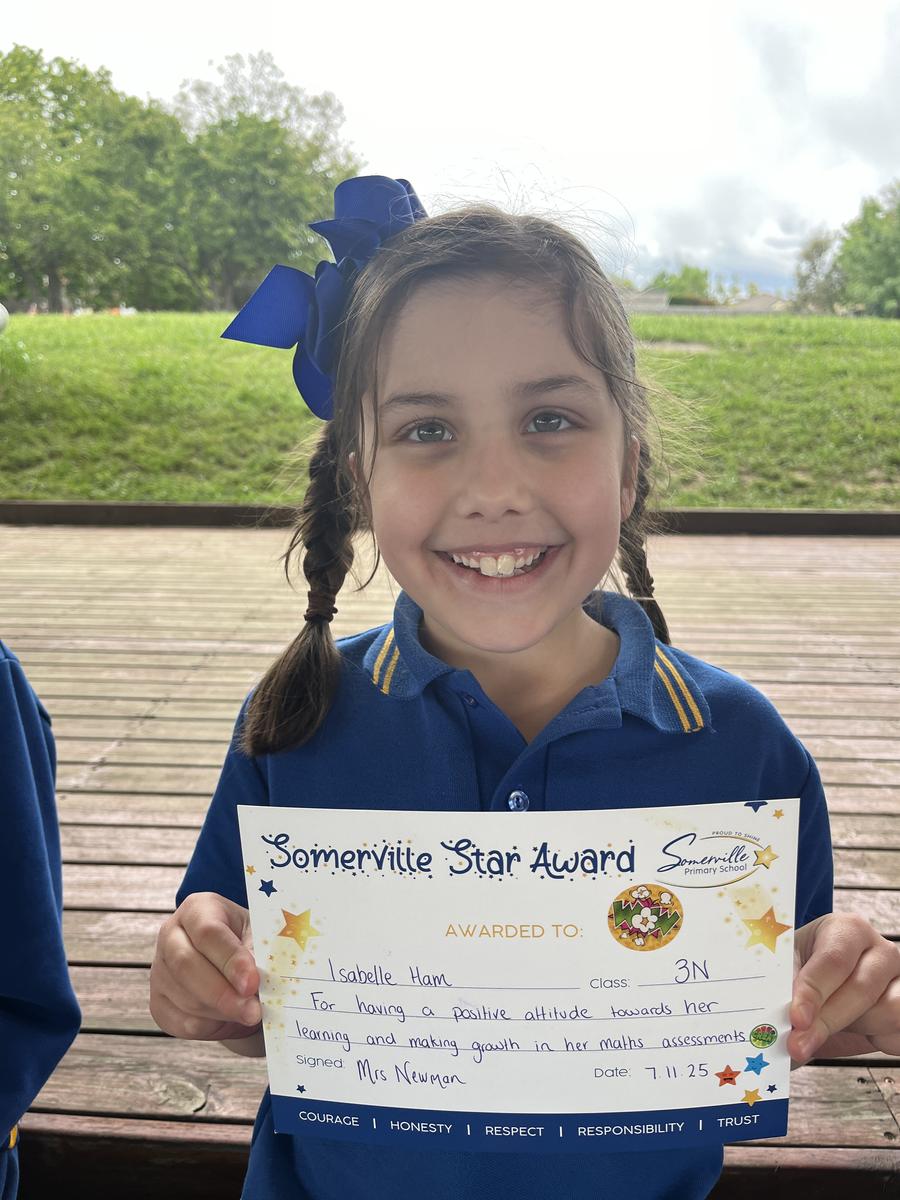 Somerville Star Award
PROUD TO SHINE
Somerville
Primary School
AWARDED TO:
Isabelle Ham Class: 3N
For having a positive attitude towards her
learning and making growth in her maths assessments
Signed: Mrs Newman Date: 7.11.25
COURAGE | HONESTY | RESPECT | RESPONSIBILITY | TRUST